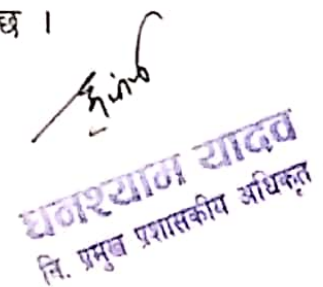 छ ।
घनश्याम यादव
नि. प्रमुख प्रशासकीय अधिकृत